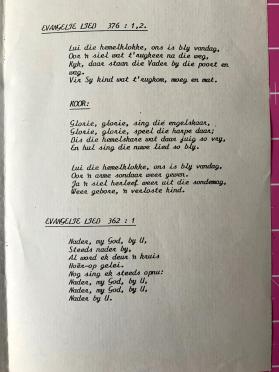 EVANGELIE LIED 376 : 1,2.
Lui die hemelklokke, ons is bly vandag,
Oor 'n siel wat t'rugkeer na die weg,
Kyk, daar staan die Vader by die poort en
weg.
Vir Sy kind wat t'rugkom, moeg en mat.
KOOR:
Glorie, glorie, sing die engelskaar,
Glorie, glorie, speel die harpe daar;
Dis die hemelskare wat daar juig so vry,
En hul sing die nuwe lied so bly.
Lui die hemelklokke, ons is bly vandag,
Oor 'n arme sondaar weer gewen.
Ja 'n siel herleef weer uit die sondemag,
Weer gebore, 'n verloste kind.
EVANGELIE LIED 362 : 1
Nader, my God, by U,
Steeds nader by,
Al word ek deur 'n kruis
Hoër-op gelei.
Nog sing ek steeds opnu:
Nader, my God, by U,
Nader, my God, by U,
Nader by U.